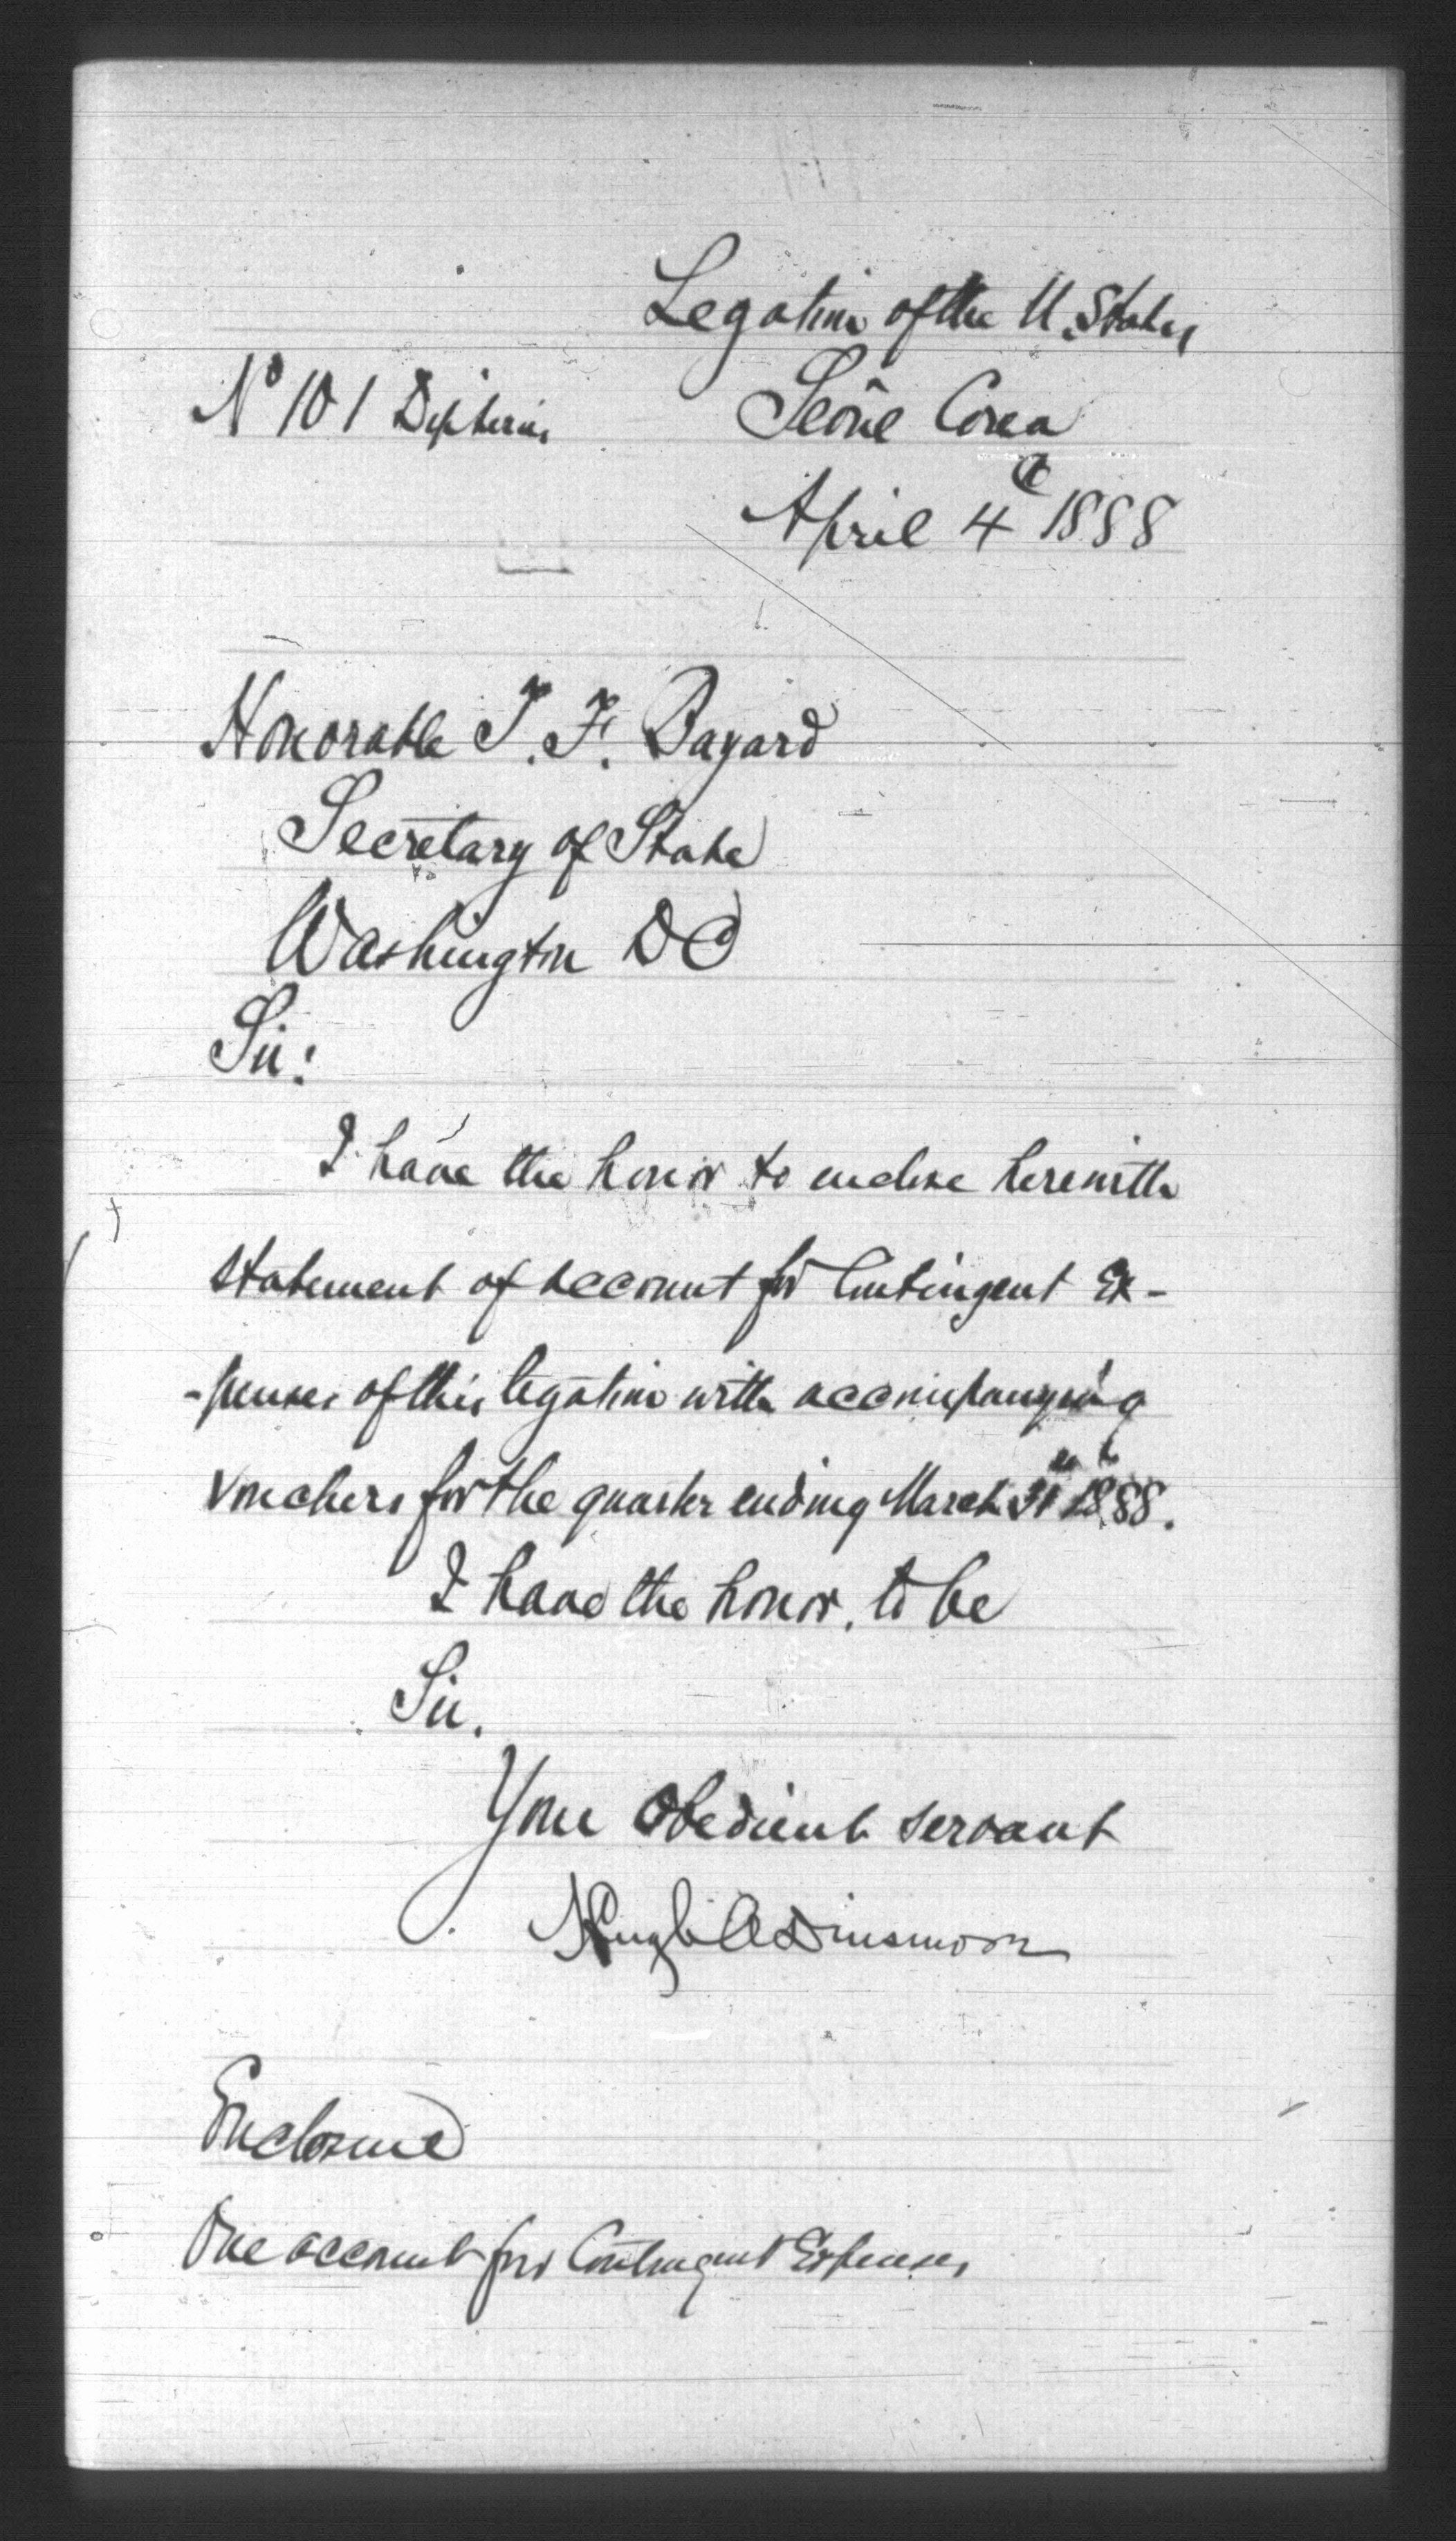 Legation of the U. States
Nº 101 Dip Series
Seoul Corea
April 4th 1888
Honorable T. F. Bayard
Secretary of State
Washington DC
Sir:
I have the honor to enclose herewith
statement of account for Contingent Ex-
-penses of this legation with accompanying
vouchers for the quarter ending March 31st 1888.
I have the honor, to be
Sir.
Your obedient servant
Hugh A Dinsmore
Enclosure
One account for Contingent Expenses